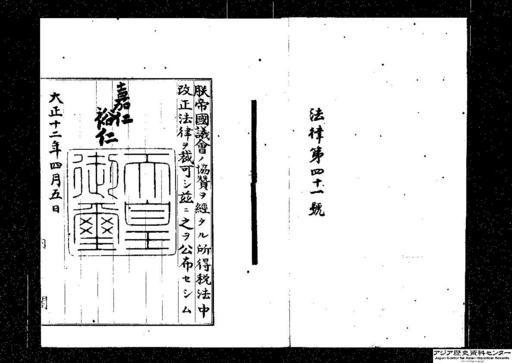 法律第四十一號
朕帝國議會ノ協贊ヲ經タル所得税法中
改正法律ヲ裁可シ茲ニ之ヲ公布セシム
嘉仁
裕仁
天皇
御璽
大正十二年四月五日
内閣
アジア歴史資料センター
Japan Center for Asian Historical Records